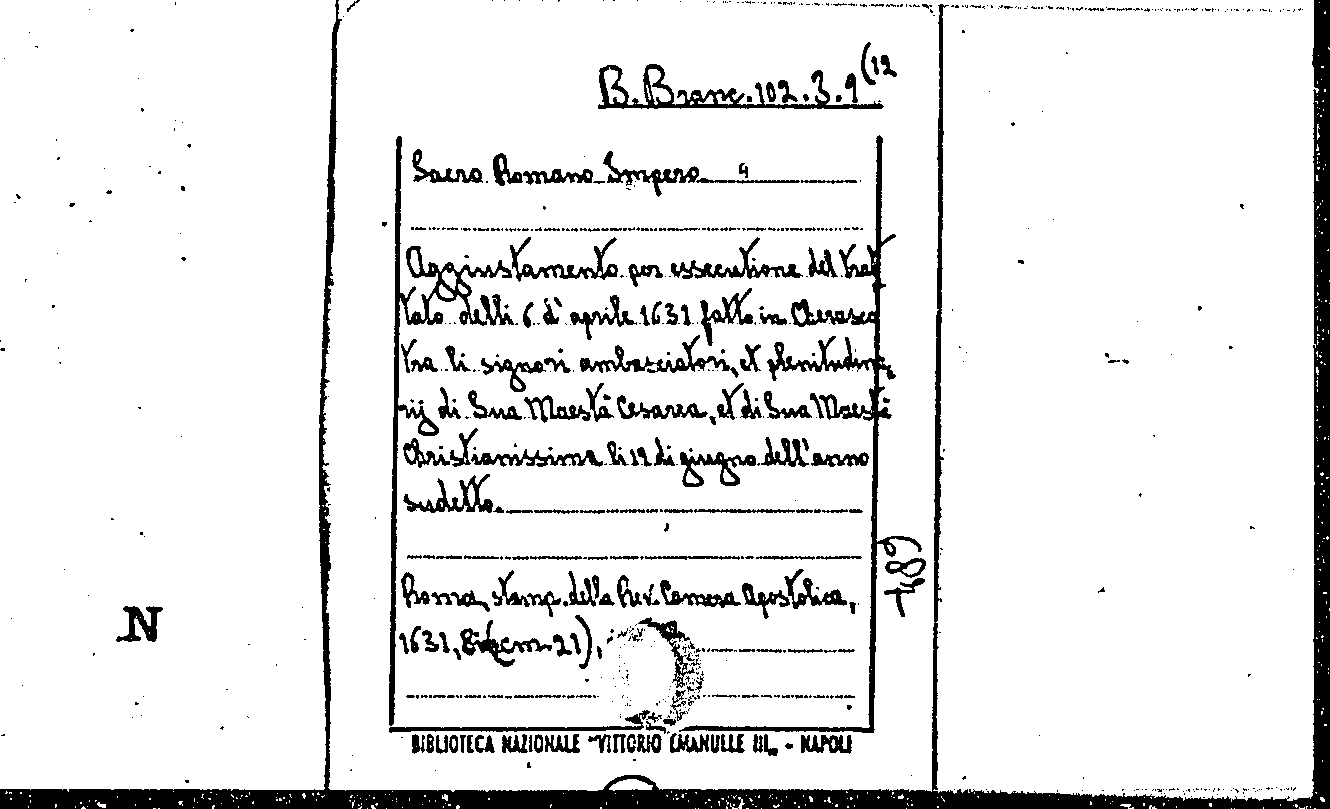 B. Branc. 102. 3. 9 (12
Sacro Romano Impero
Aggiustamento per essecutione del trat
tato delli 6 d' aprile 1631 fatto in Cherasco
tra li signori ambasciatori, et plenitudina
rij di Sua Maestà Cesarea, et di Sua Maestà
Christianissima li 19 di giugno dell'anno
sudetto.
Roma, stamp. della Rev. Camera Apostolica,
1631, 8° (cm 21),
BIBLIOTECA NAZIONALE "VITTORIO EMANULLE III" - NAPOLI
N